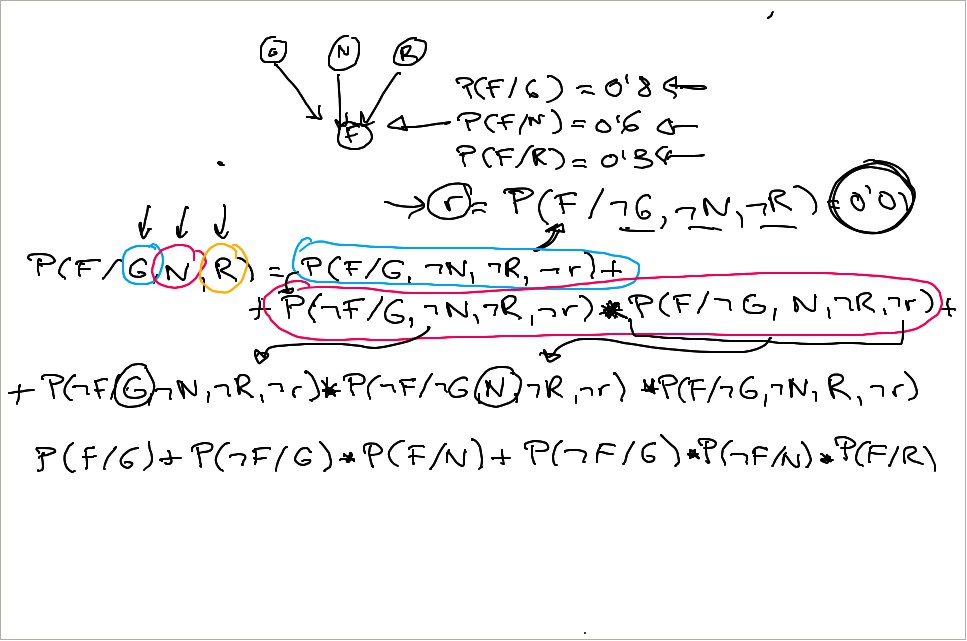 G N R
F
P(F/G) = 0'8
P(F/N) = 0'6
P(F/R) = 0'3
r = P(F/¬G, ¬N, ¬R) = 0'01
P(F/G, N, R) = P(F/G, ¬N, ¬R, ¬r) +
+ P(¬F/G, ¬N, ¬R, ¬r) * P(F/¬G, N, ¬R, ¬r) +
+ P(¬F/G, ¬N, ¬R, ¬r) * P(¬F/¬G, N, ¬R, ¬r) * P(F/¬G, ¬N, R, ¬r)
P(F/G) + P(¬F/G) * P(F/N) + P(¬F/G) * P(¬F/N) * P(F/R)